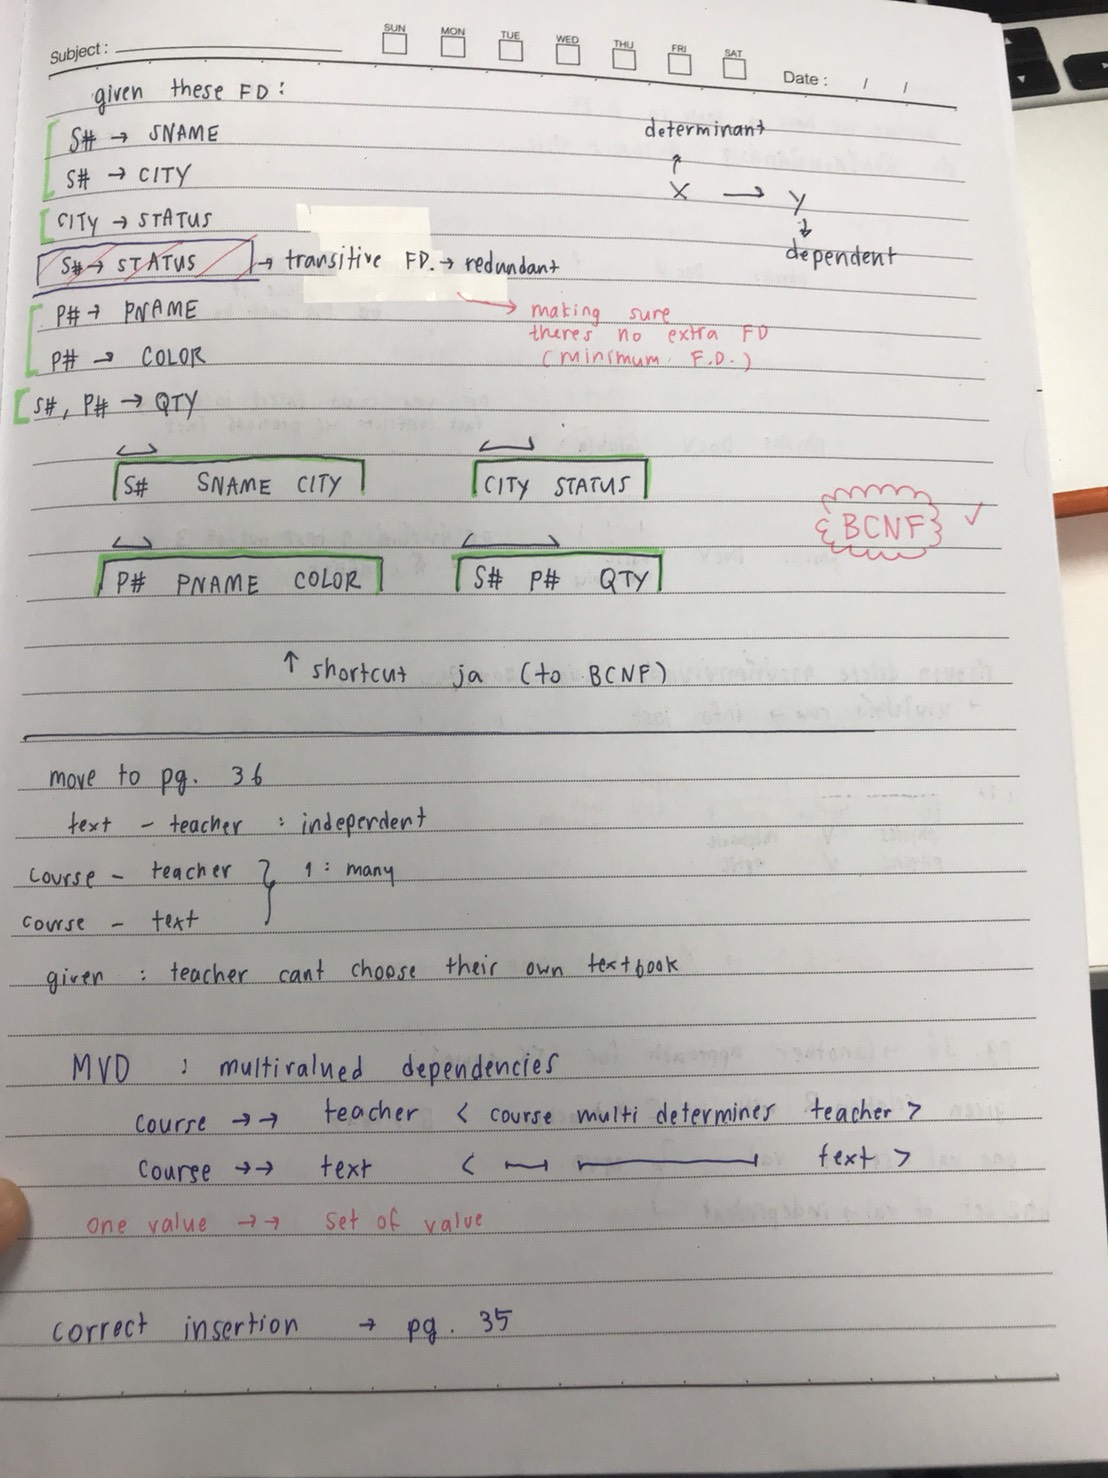 Subject :
SUN MON TUE WED THU FRI SAT
Date : / /
given these FD :
S# → SNAME
S# → CITY
CITY → STATUS
S# → STATUS → transitive FD. → redundant
P# → PNAME
P# → COLOR
S#, P# → QTY
determinant
↑
X → Y
↓
dependent
→ making sure
theres no extra FD
(minimum F.D.)
S# SNAME CITY
CITY STATUS
P# PNAME COLOR
S# P# QTY
{BCNF} ✓
↑ shortcut ja (to BCNF)
move to pg. 36
text - teacher : independent
course - teacher } 1 : many
course - text
given : teacher cant choose their own textbook
MVD : multivalued dependencies
course →→ teacher < course multi determines teacher >
course →→ text < text >
one value →→ set of value
correct insertion → pg. 35